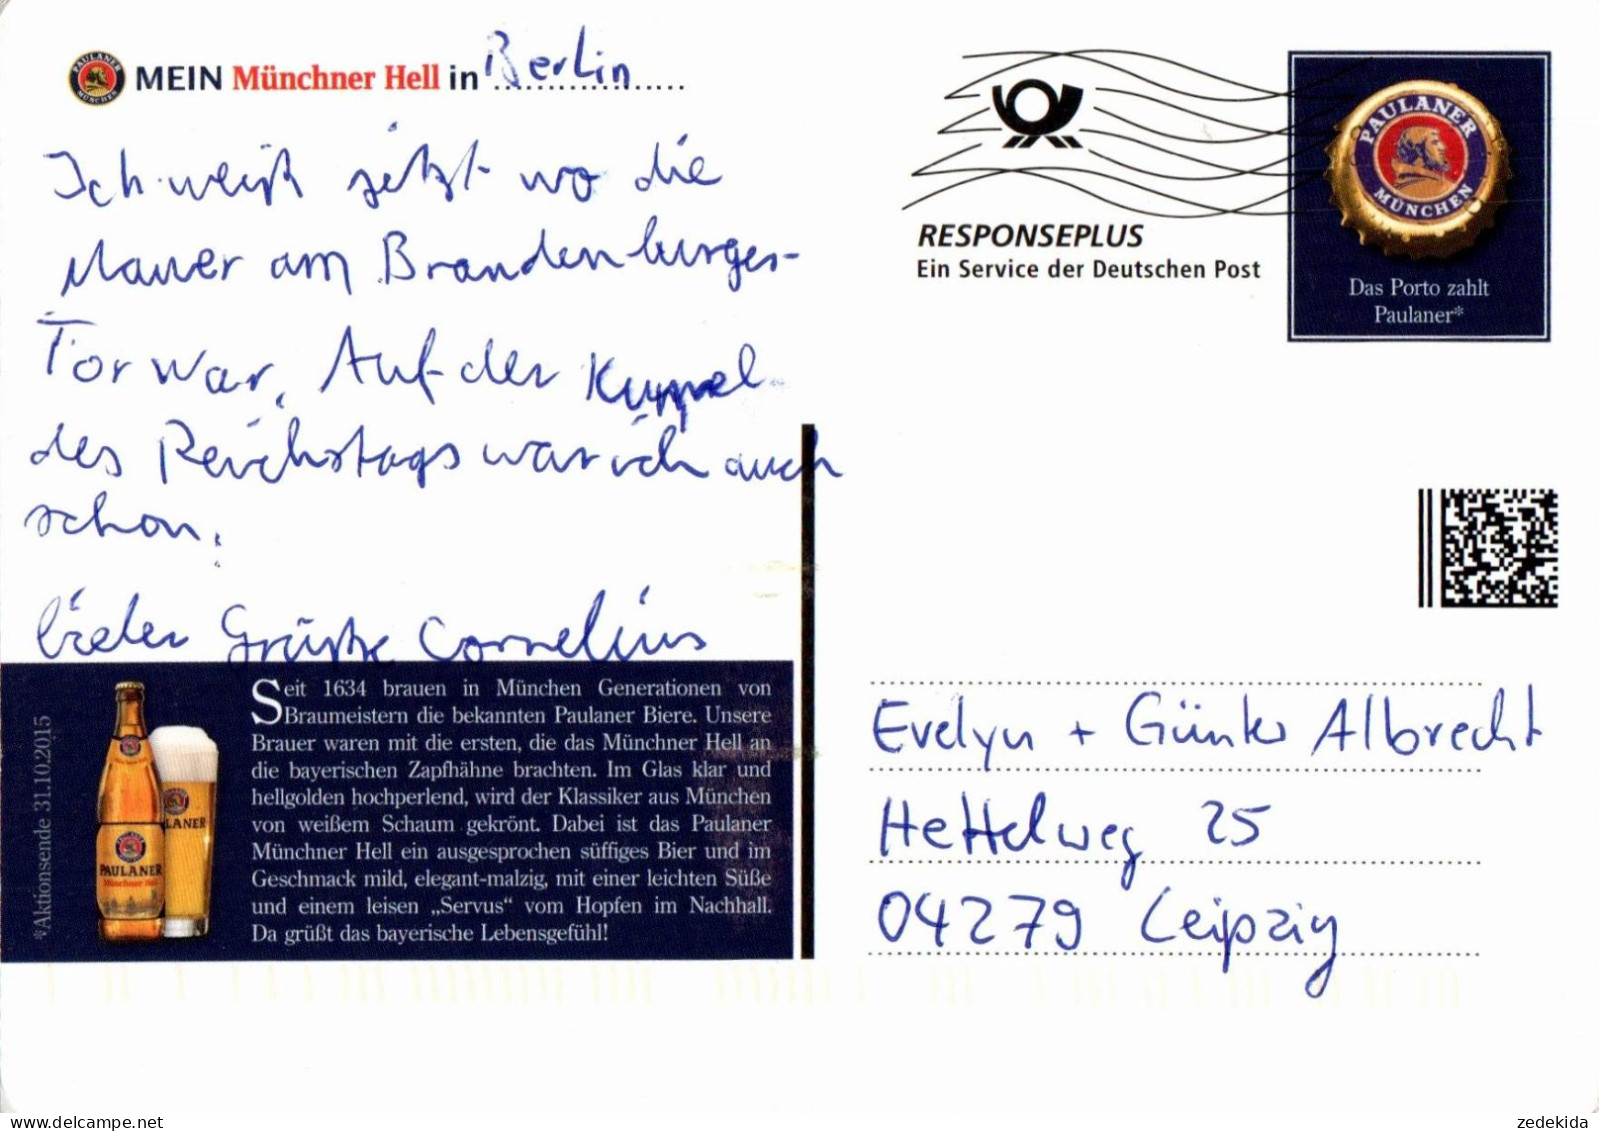 PAULANER MÜNCHEN
MEIN Münchner Hell in Berlin
Ich weiß jetzt wo die
Mauer am Brandenburger-
Tor war. Auf der Kuppel
des Reichstags war ich auch
schon.
Viele Grüße Cornelius
*Aktionsende 31.10.2015
PAULANER
Münchner Hell
LANER
Seit 1634 brauen in München Generationen von
Braumeistern die bekannten Paulaner Biere. Unsere
Brauer waren mit die ersten, die das Münchner Hell an
die bayerischen Zapfhähne brachten. Im Glas klar und
hellgolden hochperlend, wird der Klassiker aus München
von weißem Schaum gekrönt. Dabei ist das Paulaner
Münchner Hell ein ausgesprochen süffiges Bier und im
Geschmack mild, elegant-malzig, mit einer leichten Süße
und einem leisen „Servus“ vom Hopfen im Nachhall.
Da grüßt das bayerische Lebensgefühl!
RESPONSEPLUS
Ein Service der Deutschen Post
PAULANER
MÜNCHEN
Das Porto zahlt
Paulaner*
Evelyn + Günter Albrecht
Hettelweg 25
04279 Leipzig
zedekida